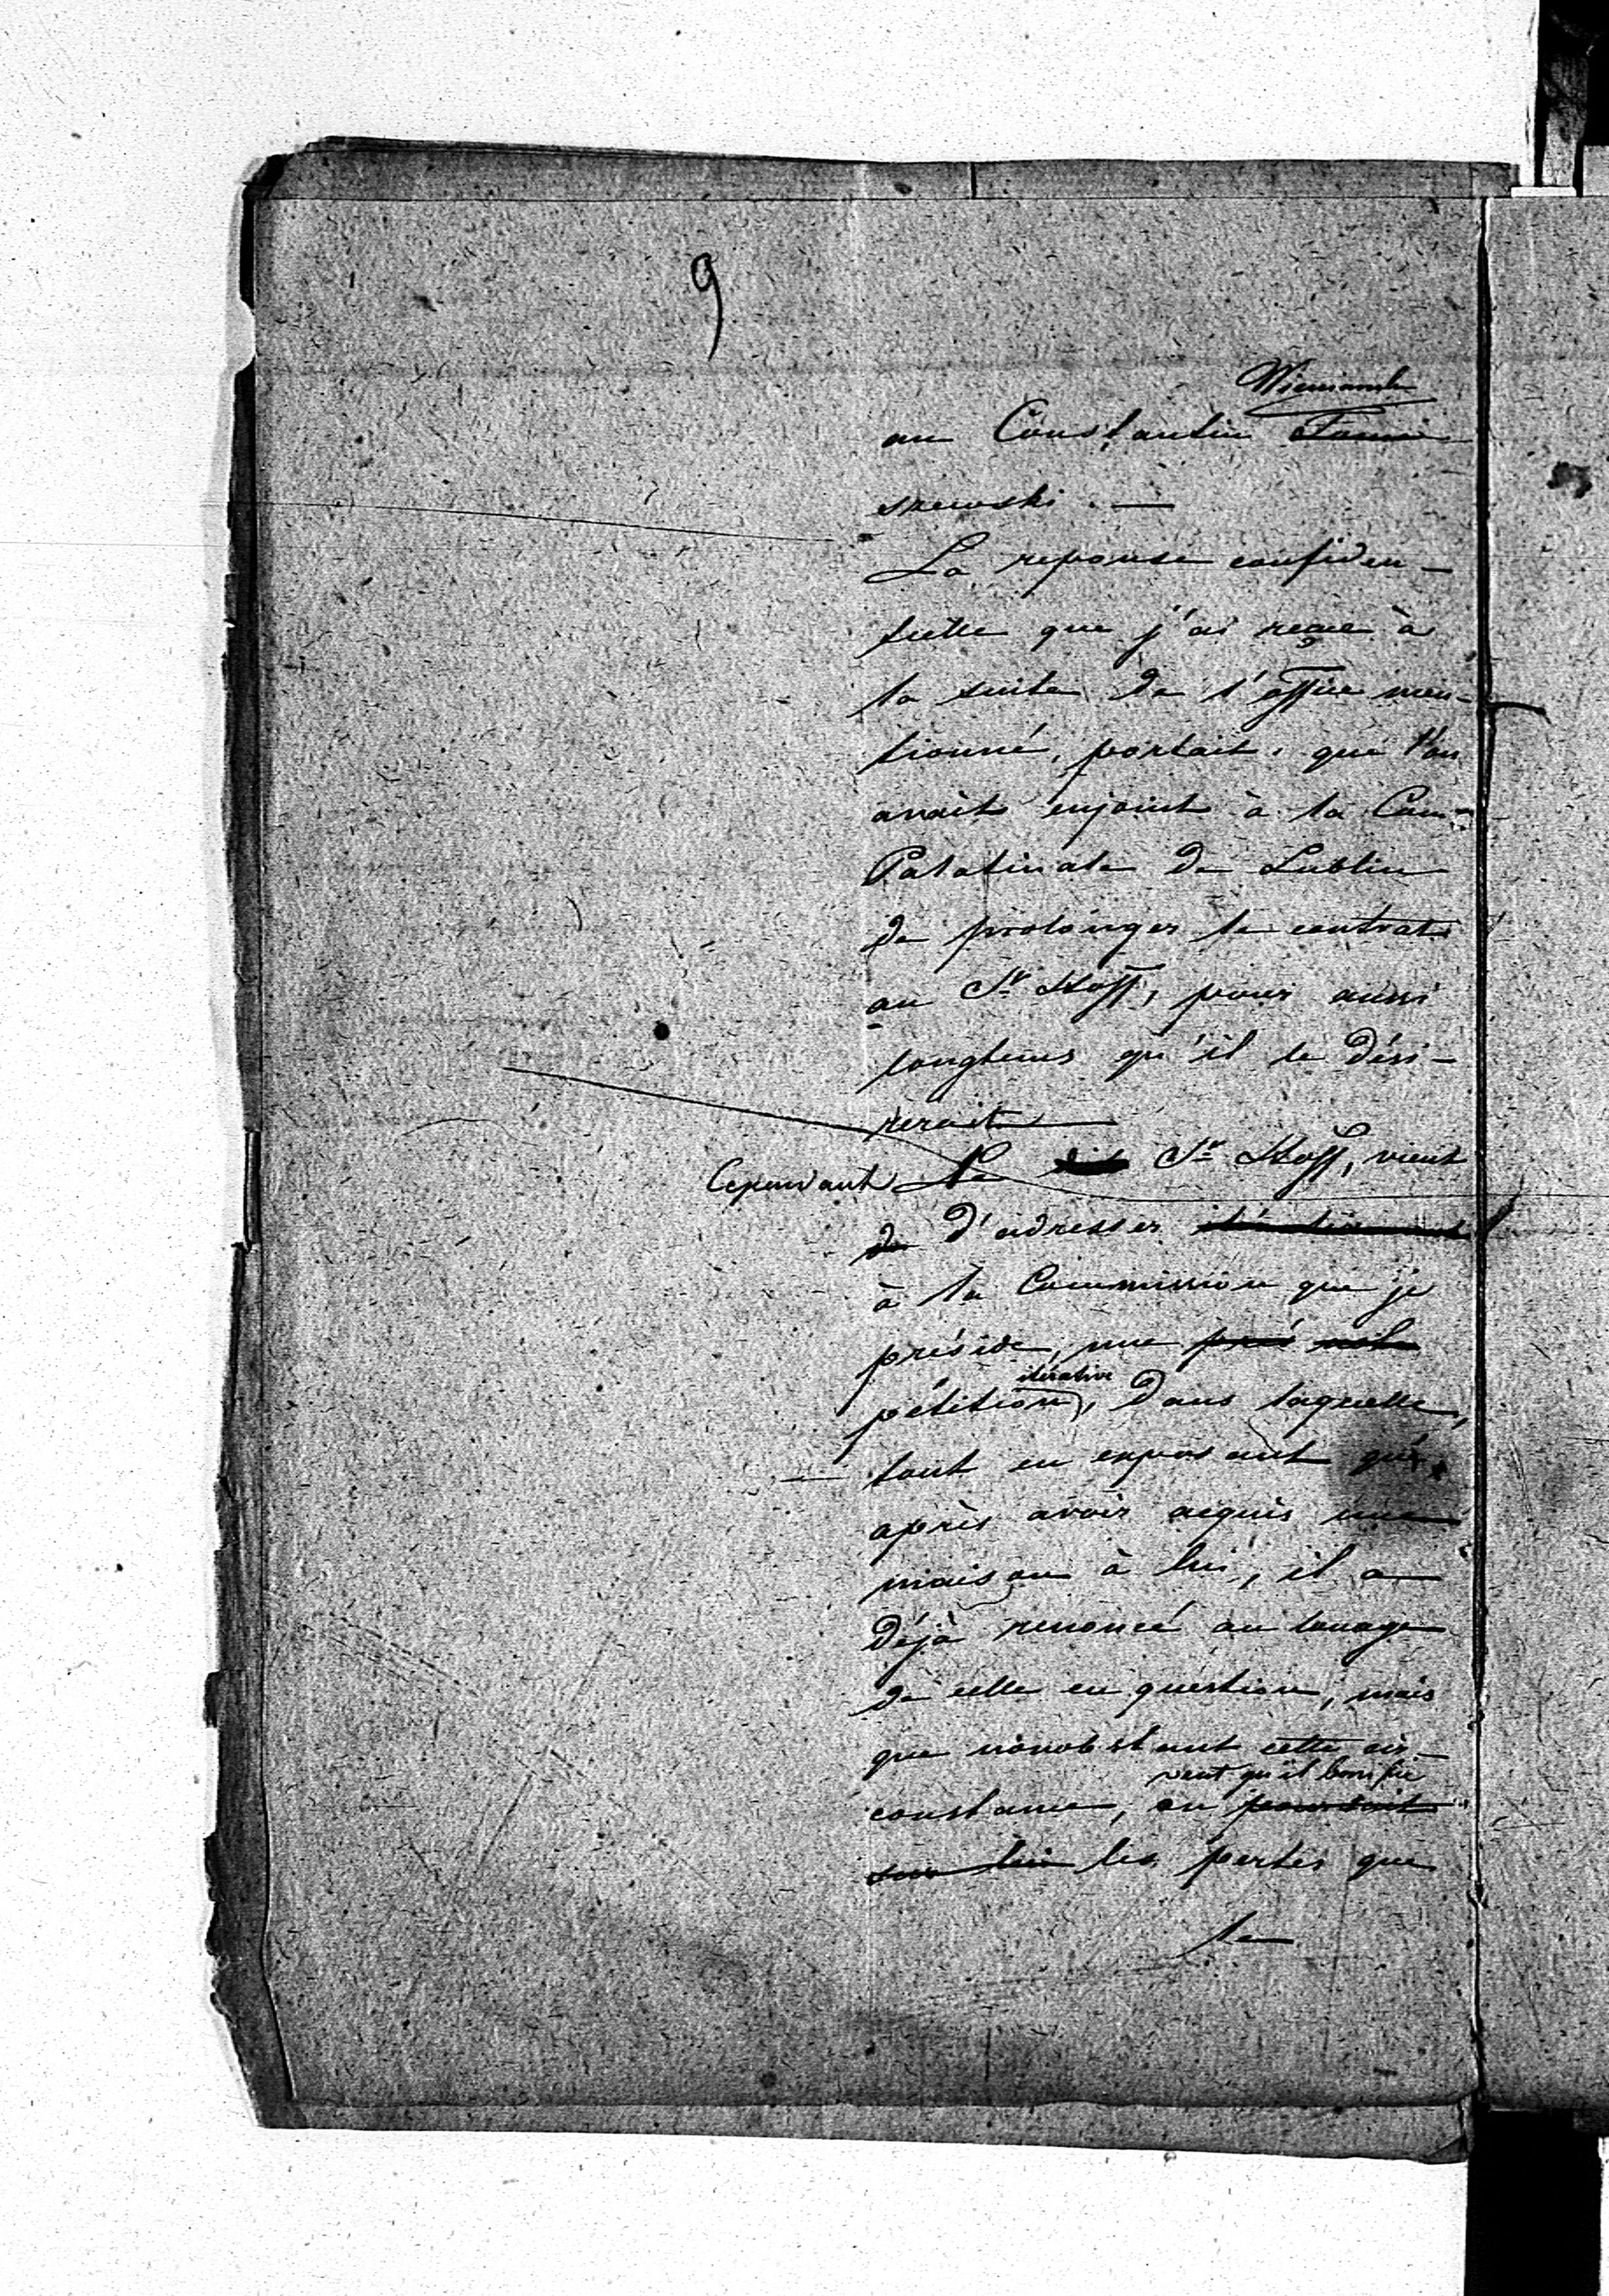 9
au Constantin Tomi
szewski. —
La reponse confiden-
tielle que j'ai reçue à
la suite de l'office men-
tionné, portait, que l'on
avait enjoint à la Com:
Palatinale de Lublin
de prolonger le contrat
au Sr Hoff, pour aussi
longtems qu'il le dési-
rerait —
Cependant Le Sr Hoff, vient
de d'adresser itérativement
à la Commission que je
préside, une
itérative
pétition, dans laquelle,
tout en exposant que,
après avoir acquis une
maison à lui, il a
déjà renoncé au louage
de celle en question, mais
que nonobstant cette cir-
veut qu'il bonifie
constance, on poursuit
sur lui les pertes que
le